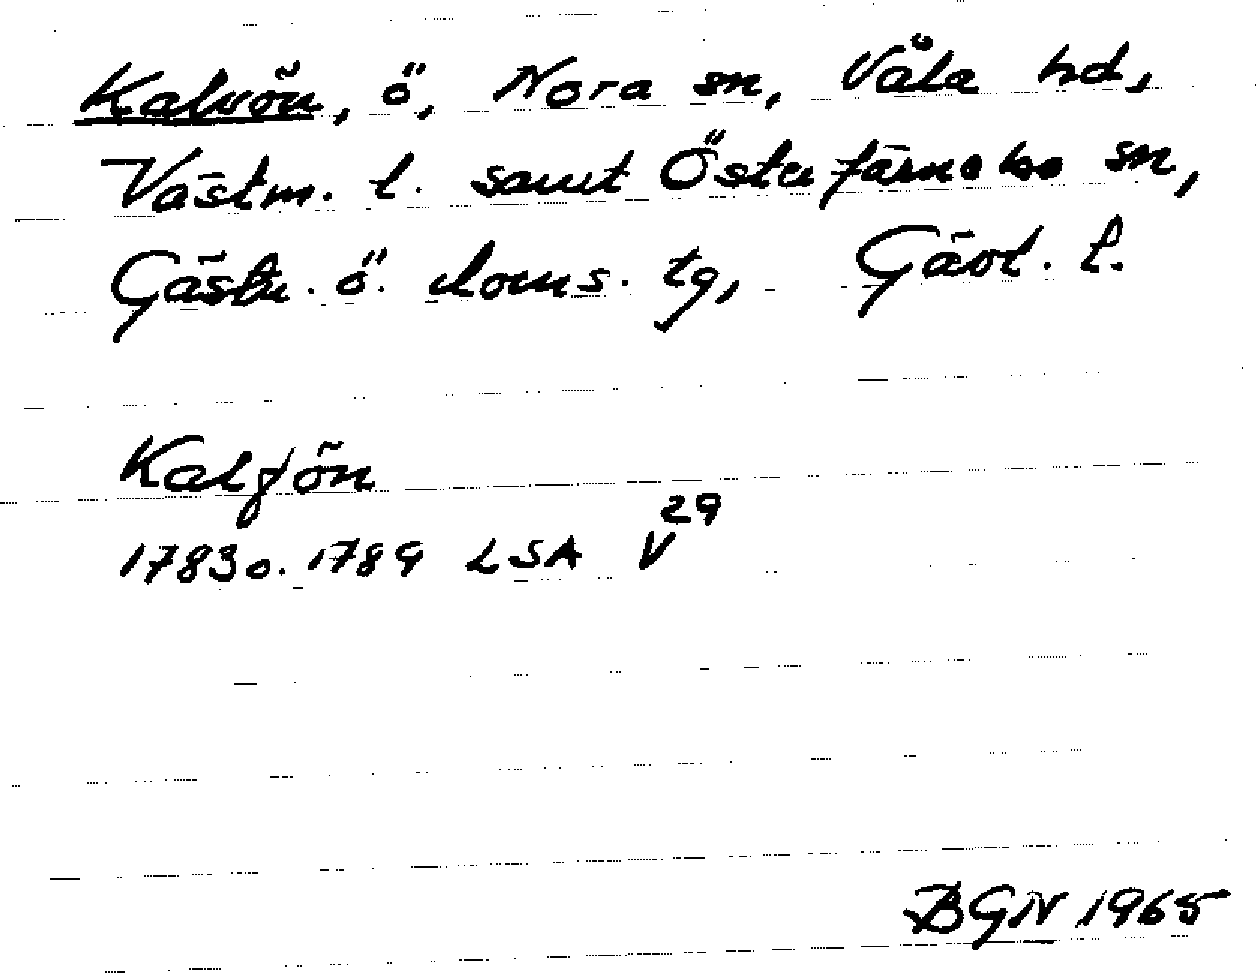 Kalvön, ö, Nora sn, Våla hd,
Västm. l. samt Österfärnebo sn,
Gästr. ö. doms. tg, Gävl. l.
Kalfön
1783 o. 1789 LSA V29
BGN 1965